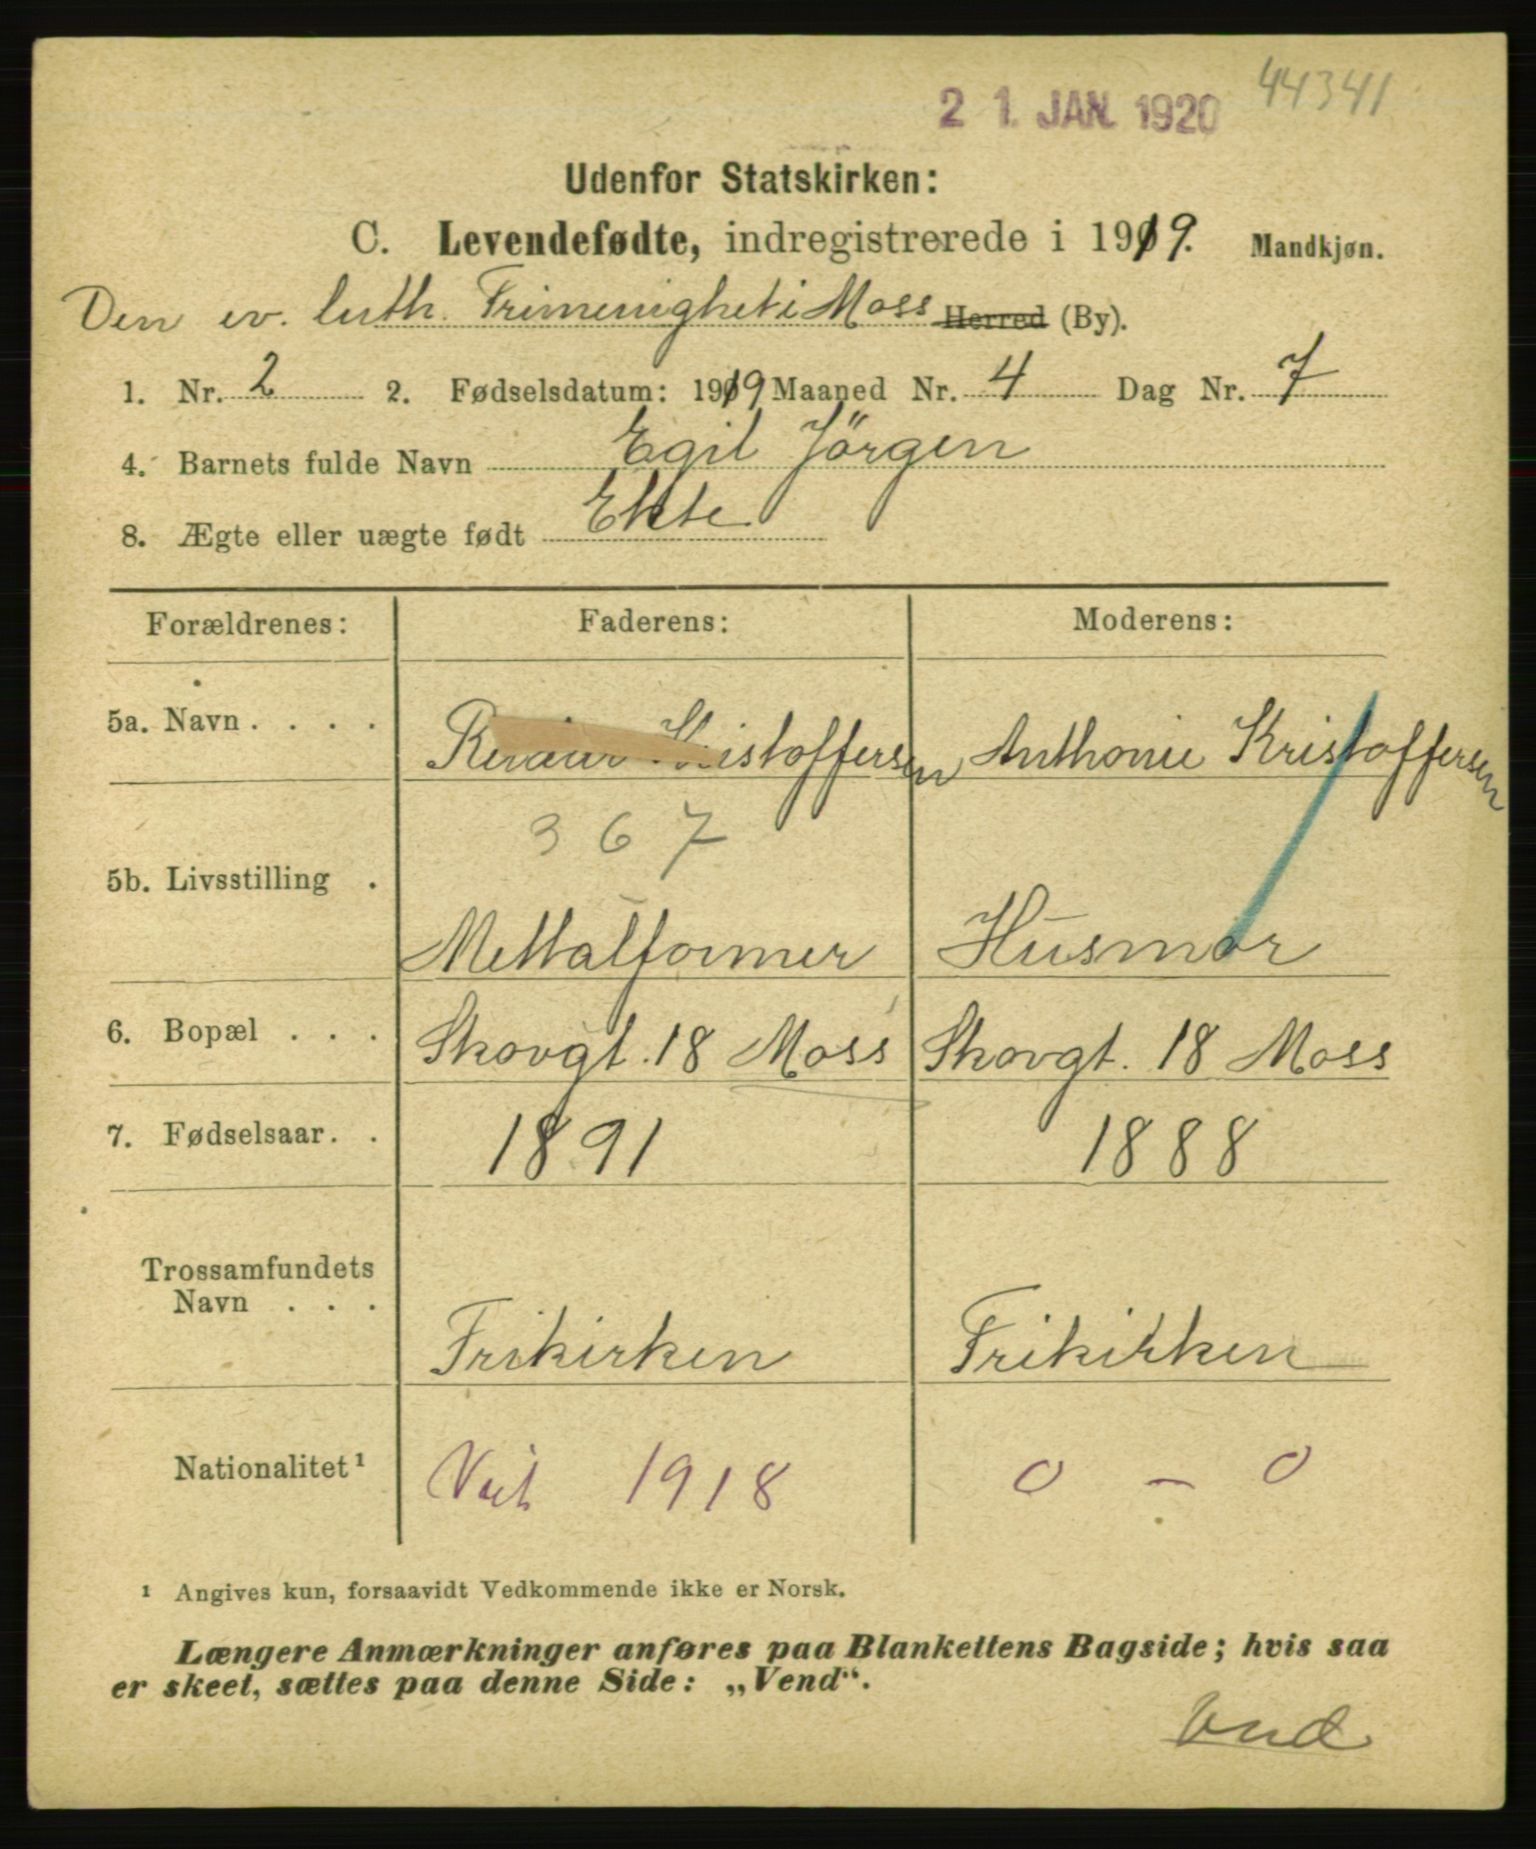 21. JAN. 1920 44341
Udenfor Statskirken:
C. Levendefødte, indregistrerede i 1919. Mandkjøn.
Den ev. luth. Frimenighet i Moss Herred (By).
1. Nr. 2 2. Fødselsdatum: 1919 Maaned Nr. 4 Dag Nr. 7
4. Barnets fulde Navn Egil Jörgen
8. Ægte eller uægte født Ekte
Forældrenes: Faderens: Moderens:
5a. Navn . . . . Kristoffersen Anthonie Kristoffersen
367
5b. Livsstilling .
Mettalformer Husmor
6. Bopæl . . . Skovgt. 18 Moss Skovgt. 18 Moss
7. Fødselsaar . . 1891 1888
Trossamfundets
Navn . . .
Frikirken Frikirken
Nationalitet¹ Viet 1918 0 - 0
¹ Angives kun, forsaavidt Vedkommende ikke er Norsk.
Længere Anmærkninger anføres paa Blankettens Bagside; hvis saa
er skeet, sættes paa denne Side: „Vend“.
Vend